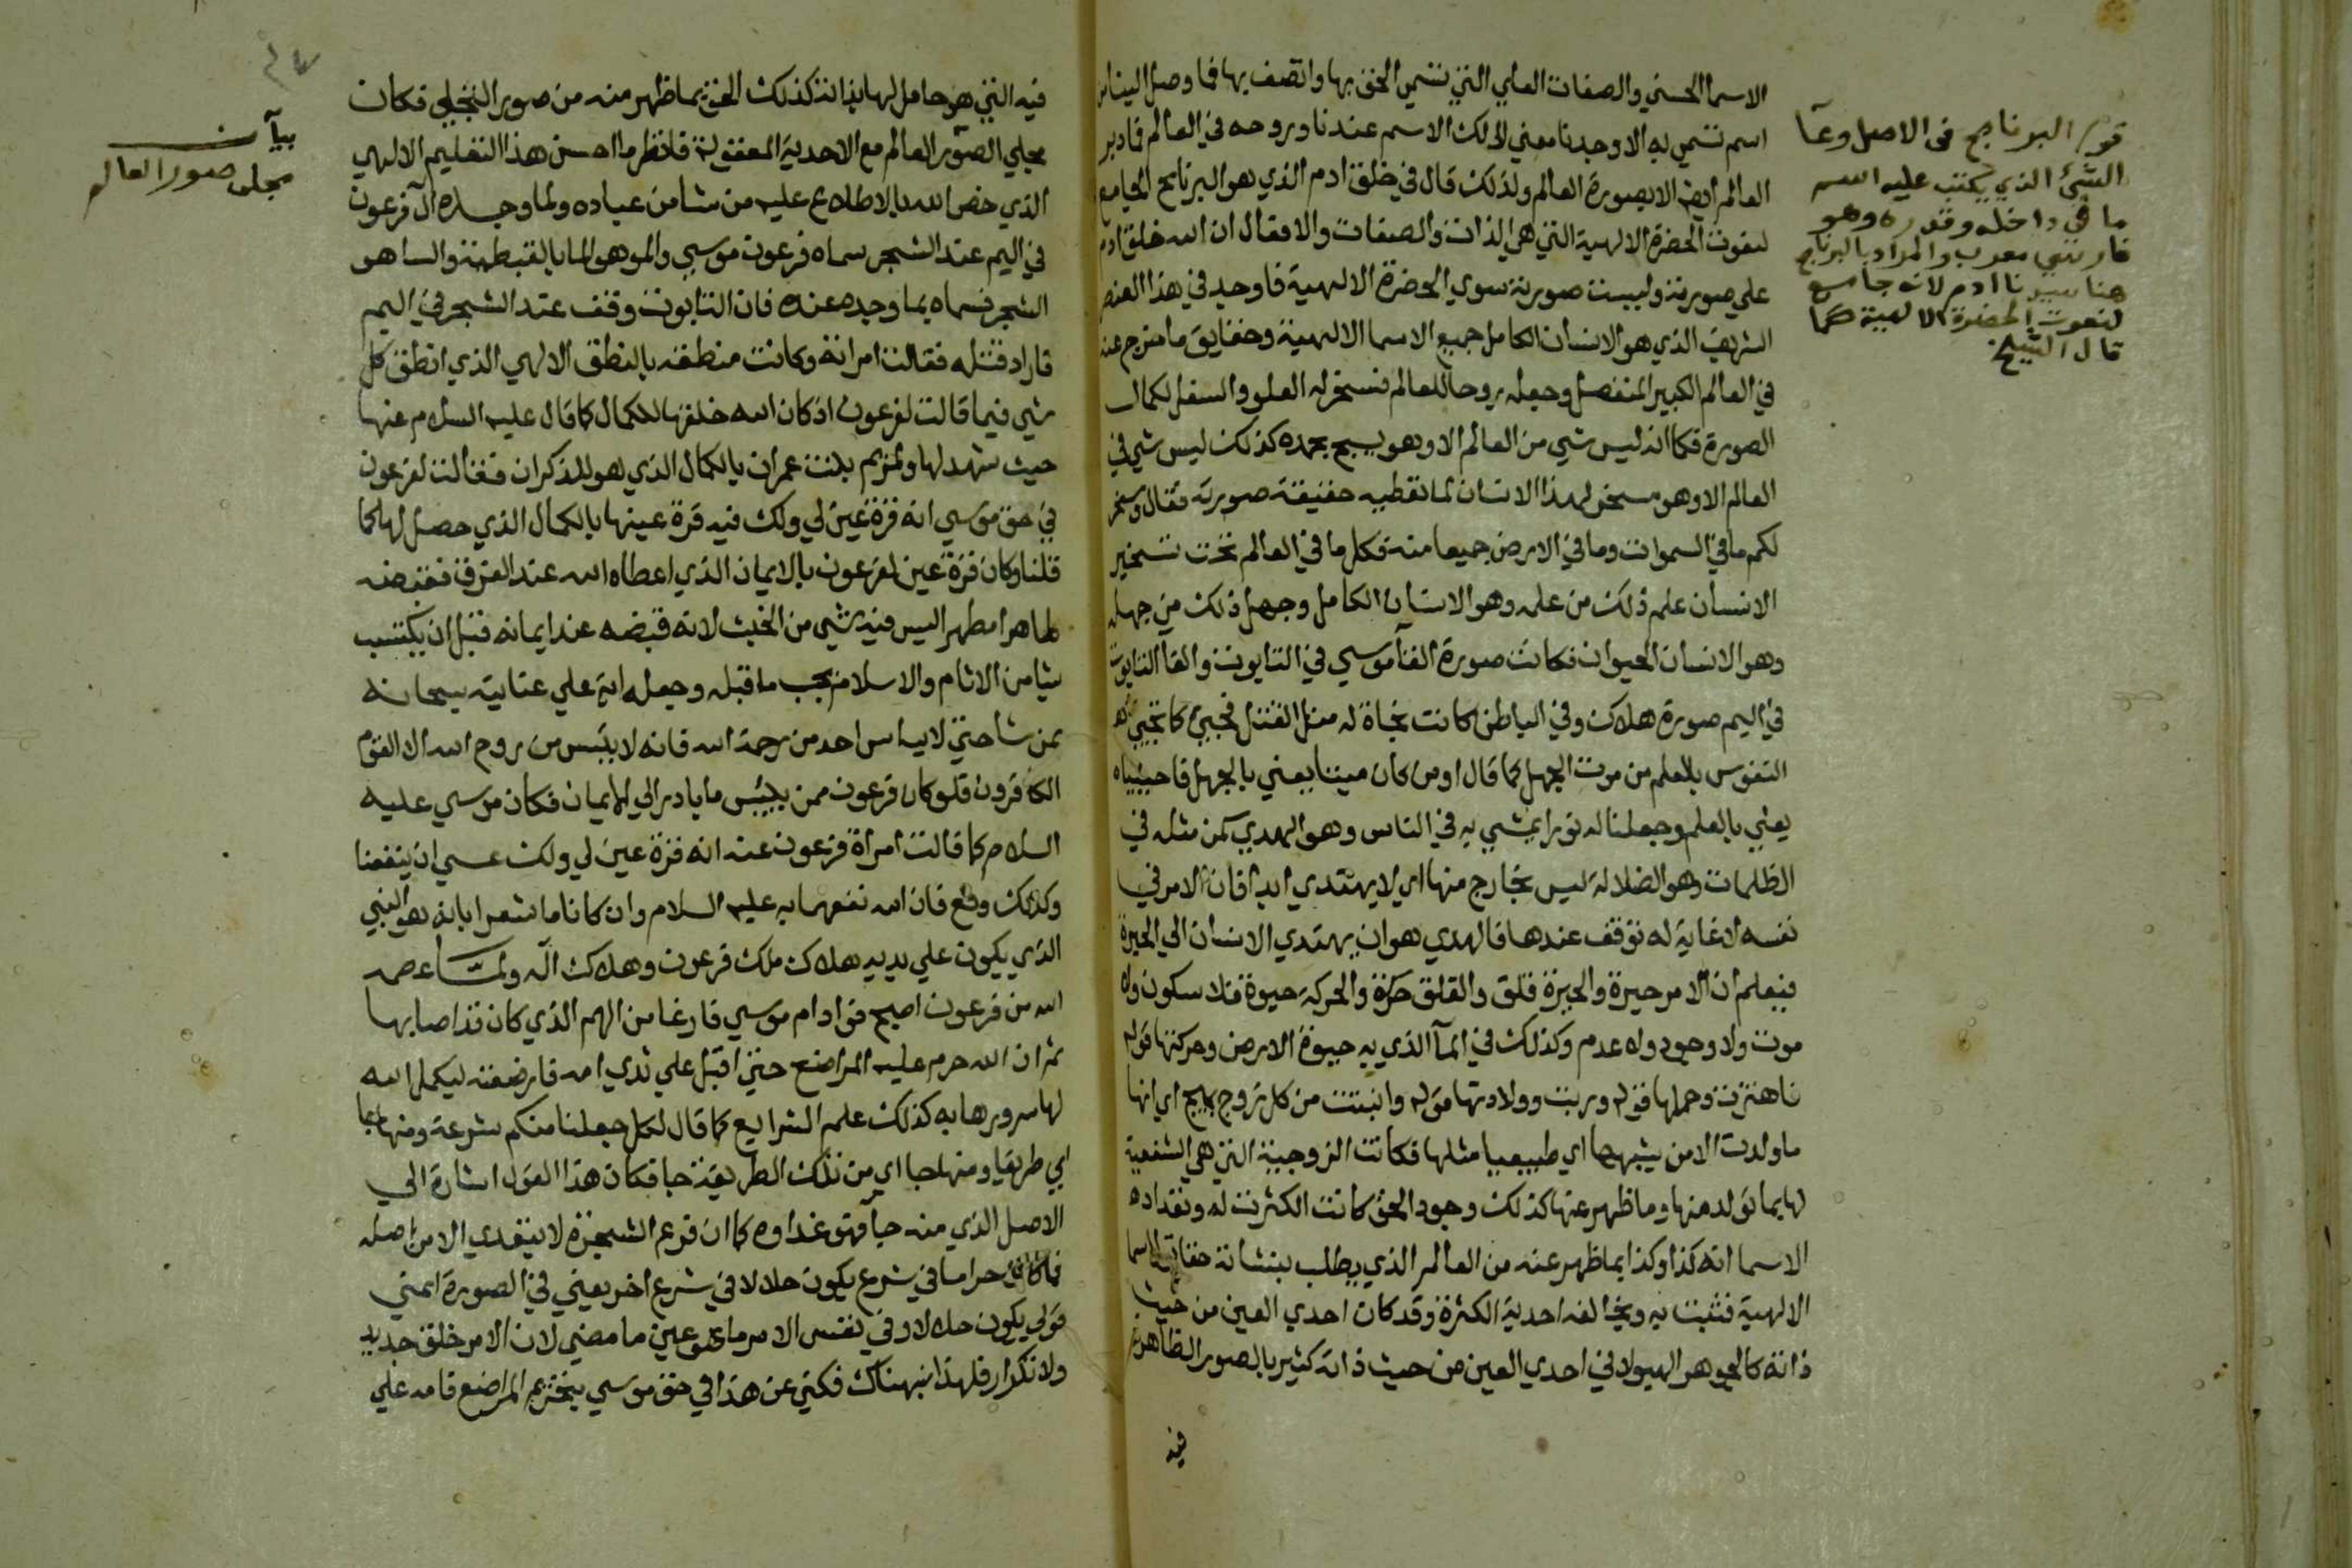 الاسما الحسني والصفات العلي التي تسمي الحق بها واتصف بها فما وصل الينا من
اسم تسمي به الا وجدنا معني ذلك الاسم عندنا وروحه في العالم فما دبر
العالم ايضا الا بصورة العالم ولذلك قال في خلق ادم الذي هو البرنامج الجامع
لنعوت الحضرة الالهية التي هي الذات والصفات والافعال ان الله خلق ادم
علي صورته وليست صورته سوي الحضرة الالهية فاوجد في هذا المختصر
الشريف الذي هو الانسان الكامل جميع الاسما الالهية وحقايق ما خرج عنه
في العالم الكبير المنفصل وجعله روحا للعالم فسخر له العلو والسفل لكمال
الصورة فكما انه ليس شي من العالم الا وهو يسبح بحمده كذلك ليس شي في
العالم الا وهو مسخر لهذا الانسان لما تعطيه حقيقة صورته فقال وسخر
لكم ما في السموات وما في الارض جميعا منه فكل ما في العالم تحت تسخير
الانسان علم ذلك من علمه وهو الانسان الكامل وجهل ذلك من جهله
وهو الانسان الحيوان فكانت صورة القآ موسي في التابوت والقا التابوت
في اليم صورة هلاك وفي الباطن كانت نجاة له من القتل فحيي كما تحيي
النفوس بالعلم من موت الجهل كما قال اومن كان ميتا يعني بالجهل فاحييناه
يعني بالعلم وجعلنا له نورا يمشي به في الناس وهو الهدي كمن مثله في
الظلمات وهو الضلالة ليس بخارج منها اي لا يهتدي ابدا فان الامر في
نفسه لا غاية له توقف عندها فالهدي هو ان يهتدي الانسان الي الحيرة
فيعلم ان الامر حيرة والحيرة قلق والقلق حركة والحركة حيوة فلا سكون ولا
موت ولا وجود ولا عدم وكذلك في المآ الذي به حيوة الارض وحركتها قوله
فاهتزت وحملها قوله وربت وولادتها قوله وانبتت من كل زوج بهيج اي انها
ما ولدت الا من يشبهها اي طبيعيا مثلها فكانت الزوجية التي هي الشفعية
لها بما تولد منها وما ظهر عنها كذلك وجود الحق كانت الكثرت له وتعداده
الاسما انه كذا وكذا بما ظهر عنه من العالم الذي يطلب بنشاته حقايق الاسما
الالهية فثبت به ويخالفه احدية الكثرة وقد كان احدي العين من حيث
ذاته كالجوهر الهيولاني احدي العين من حيث ذاته كثير بالصور الظاهرة
فيه
قوله البرنامج في الاصل وعآ
الشئ الذي يكتب عليه اسم
ما في داخله وقدره وهو
فارسي معرب والمراد بالبرنامج
هنا سيدنا ادم لانه جامع
لنعوت الحضرة الالهية كما
قال الشيخ
فيه التي هو حامل لها بذاته كذلك الحق بما ظهر منه من صور التجلي فكان
مجلي الصور العالم مع الاحدية المعقولة فانظر ما احسن هذا التعليم الالهي
الذي خص الله بالاطلاع عليه من شا من عباده ولما وجده آل فرعون
في اليم عند الشجر سماه فرعون موسي والمو هو الما بالقبطية والسا هو
الشجر فسماه بما وجده عنده فان التابوت وقف عند الشجر في اليم
فاراد قتله فقالت امراته وكانت منطقة بالنطق الالهي الذي انطق كل
شي فيما قالت لفرعون اذ كان الله خلقها للكمال كما قال عليه السلام عنها
حيث شهد لها ولمريم بنت عمران بالكمال الذي هو للذكران فقالت لفرعون
في حق موسي انه قرة عين لي ولك فيه قرة عينها بالكمال الذي حصل لها كما
قلنا وكان قرة عين لفرعون بالايمان الذي اعطاه الله عند الغرق فقبضه
طاهرا مطهرا ليس فيه شي من الخبث لانه قبضه عند ايمانه قبل ان يكتسب
شيا من الاثام والاسلام يجب ما قبله وجعله اية علي عنايته سبحانه
بمن شا حتي لا يياس احد من رحمة الله فانه لا ييئس من روح الله الا القوم
الكافرون فلو كان فرعون ممن ييئس ما بادر الي الايمان فكان موسي عليه
السلام كما قالت امراة فرعون عنه انه قرة عين لي ولك عسي ان ينفعنا
وكذلك وقع فان الله نفعهما به عليه السلام وان كانا ما شعرا بانه هو النبي
الذي يكون علي يديه هلاك ملك فرعون وهلاك آله ولما عصمه
الله من فرعون اصبح فواد ام موسي فارغا من الهم الذي كان قد اصابها
ثم ان الله حرم عليه المراضع حتي اقبل علي ثدي امه فارضعته ليكمل الله
لها سرورها به كذلك علم الشرايع كما قال لكل جعلنا منكم شرعة ومنهاجا
اي طريقا ومنهاجا اي من تلك الطريقة جا فكان هذا القول اشارة الي
الاصل الذي منه جآ فهو غذاوه كما ان فرع الشجرة لا يتغدي الا من اصله
فما كان حراما في شرع يكون حلالا في شرع اخر يعني في الصورة اعني
قولي يكون حلالا وفي نفس الامر ما هو عين ما مضي لان الامر خلق جديد
ولا تكرار فلهذا نبهناك فكني عن هذا في حق موسي بتحريم المراضع فامه علي
بيآن
مجلي صور العالم